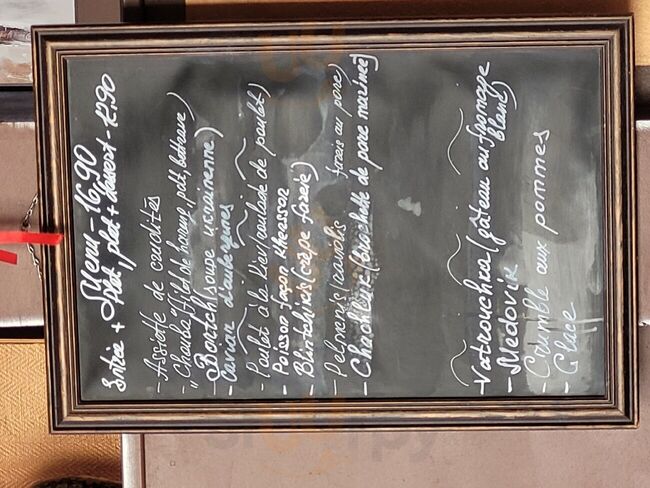 Menu - 16,90
Entrée + Plat, plat + dessert - 12,90
- Assiette de crudités
- "Chouba" (filet de hareng, pdt, betterave)
- Bortch (soupe ukrainienne)
- Caviar d'aubergenes
- Poulet à la Kiev (roulade de poulet)
- Poisson façon
- Blintchiki (crêpe farcie)
- Pelmenis (raviolis farcis au porc)
- Chachlik (brochette de porc marinée)
- Vatrouchka (gâteau au fromage blanc)
- Medovik
- Crumble aux pommes
- Glace